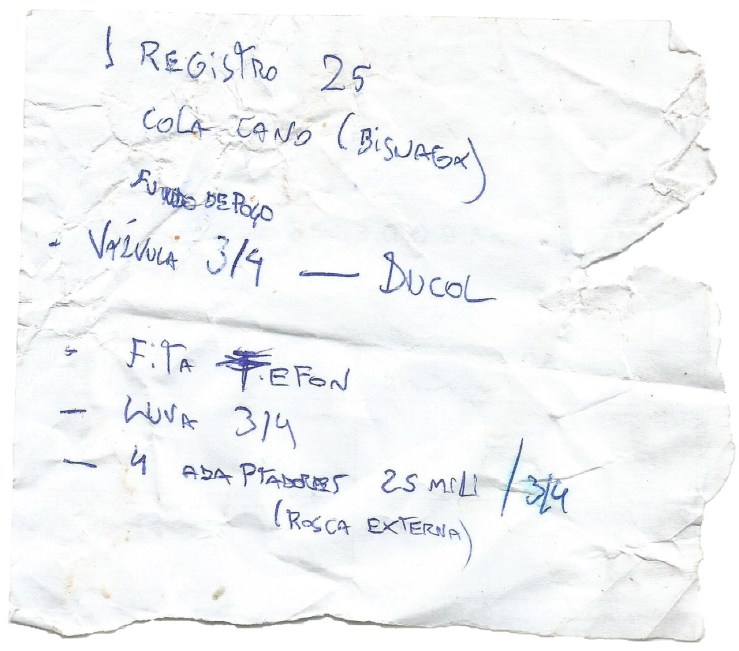 1 REGISTRO 25
COLA CANO (BISNAGA)
FUNDO DE POÇO
- VÁLVULA 3/4 — DUCOL
- FITA TEFON
- LUVA 3/4
- 4 ADAPTADORES 25 MILI / 3/4
(ROSCA EXTERNA)